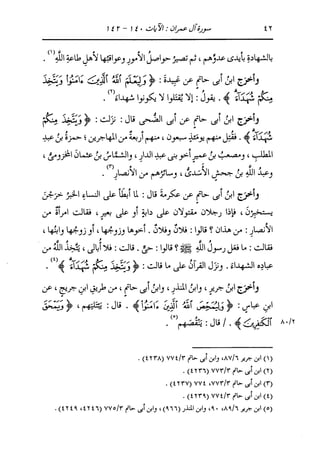 ٤٢ سورة آل عمران : الآيات ١٤٠ - ١٤٣
بالشهادةِ بأيدى عدوِّهم ، ثم تصيرُ حواصلُ الأمورِ وعواقبُها لأهلِ طاعةِ اللَّهِ(١) .
وأخرَج ابنُ أبى حاتمٍ عن عَبِيدةَ : ﴿ وَلِيَعْلَمَ اللَّهُ الَّذِينَ ءَامَنُوا وَيَتَّخِذَ
مِنكُمْ شُهَدَاءَ ﴾ . يقولُ : إلا يُقتَلوا لا يكونوا شهداءَ(٢) .
وأخرَج ابنُ أبى حاتمٍ عن أبى الضُّحى قال : نزَلت : ﴿ وَيَتَّخِذَ مِنكُمْ
شُهَدَاءَ ﴾ . فقُتِل منهم يومَئذٍ سبعون ، منهم أربعةٌ من المهاجرين ؛ حمزةُ بنُ عبدِ
المطلبِ ، ومصعبُ بنُ عميرٍ أخو بنى عبدِ الدارِ ، والشمَّاسُ بنُ عثمانَ المخزومىُّ ،
وعبدُ اللَّهِ بنُ جحشٍ الأسَدىُّ ، وسائرُهم من الأنصارِ(٣) .
وأخرَج ابنُ أبى حاتمٍ عن عكرمةَ قال : لما أبطَأ على النساءِ الخبرُ خرَجْن
يستخبِرْن ، فإذا رجلان مقتولان على دابةٍ أو على بعيرٍ ، فقالت امرأةٌ من
الأنصارِ : من هذان ؟ قالوا : فلانٌ وفلانٌ . أخوها وزوجُها ، أو زوجُها وابنُها ،
فقالت : ما فعَل رسولُ اللَّهِ ﷺ ؟ قالوا : حىٌّ . قالت : فلا أُبالى ، يتَّخِذُ اللَّهُ من
عبادِه الشهداءَ . ونزَل القرآنُ على ما قالت : ﴿ وَيَتَّخِذَ مِنكُمْ شُهَدَاءَ ﴾(٤) .
وأخرَج ابنُ جريرٍ ، وابنُ المنذرِ ، وابنُ أبى حاتمٍ ، من طريقِ ابنِ جريجٍ ، عن
ابنِ عباسٍ : ﴿ وَلِيُمَحِّصَ اللَّهُ الَّذِينَ ءَامَنُوا ﴾ . قال : يَبْتَلِيَهم ، ﴿ وَيَمْحَقَ
٨٠/٢ الْكَافِرِينَ ﴾ . / قال : يَنْقُصَهم(٥) .
(١) ابن جرير ٨٧/٦ ، وابن أبى حاتم ٧٧٤/٣ (٤٢٣٨) .
(٢) ابن أبى حاتم ٧٧٣/٣ (٤٢٣٦) .
(٣) ابن أبى حاتم ٧٧٣/٣، ٧٧٤ (٤٢٣٧) .
(٤) ابن أبى حاتم ٧٧٤/٣ (٤٢٣٩) .
(٥) ابن جرير ٨٩/٦ ، ٩٠، وابن المنذر (٩٦٦) ، وابن أبى حاتم ٧٧٥/٣ (٤٢٤٦، ٤٢٤٩) .